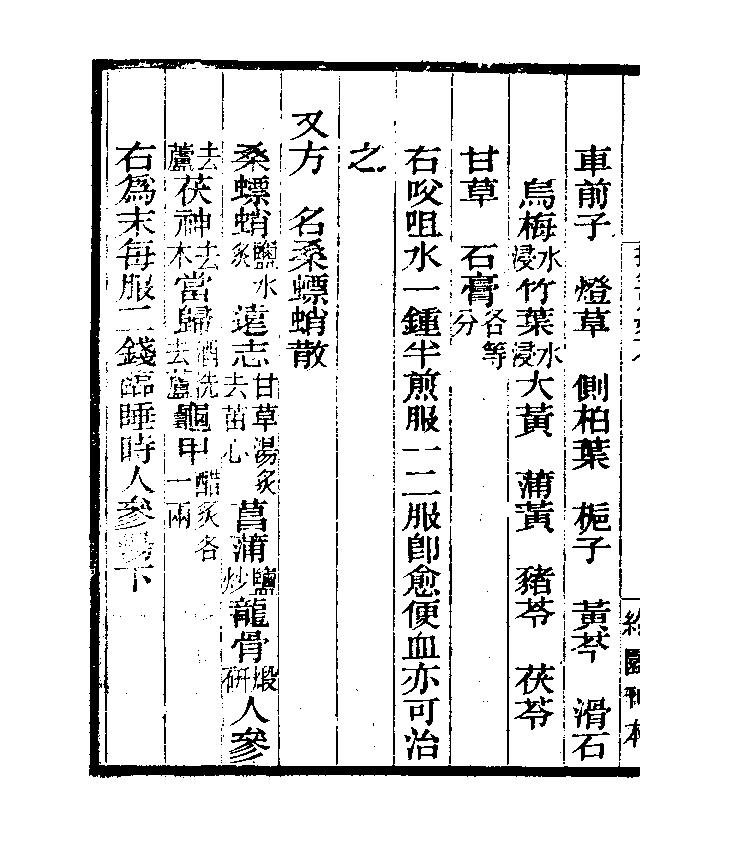 車前子　燈草　側柏葉　梔子　黃芩　滑石
烏梅水浸竹葉水浸大黃　蒲黃　豬苓　茯苓
甘草　石膏各等分
右㕮咀水一鍾半煎服一二服卽愈便血亦可治
之
又方　名桑螵蛸散
桑螵蛸鹽水炙遠志甘草湯炙去苗心菖蒲鹽炒龍骨煅硏人參
去蘆茯神去木當歸酒洗去蘆龜甲醋炙各一兩
右爲末每服二錢臨睡時人參湯下